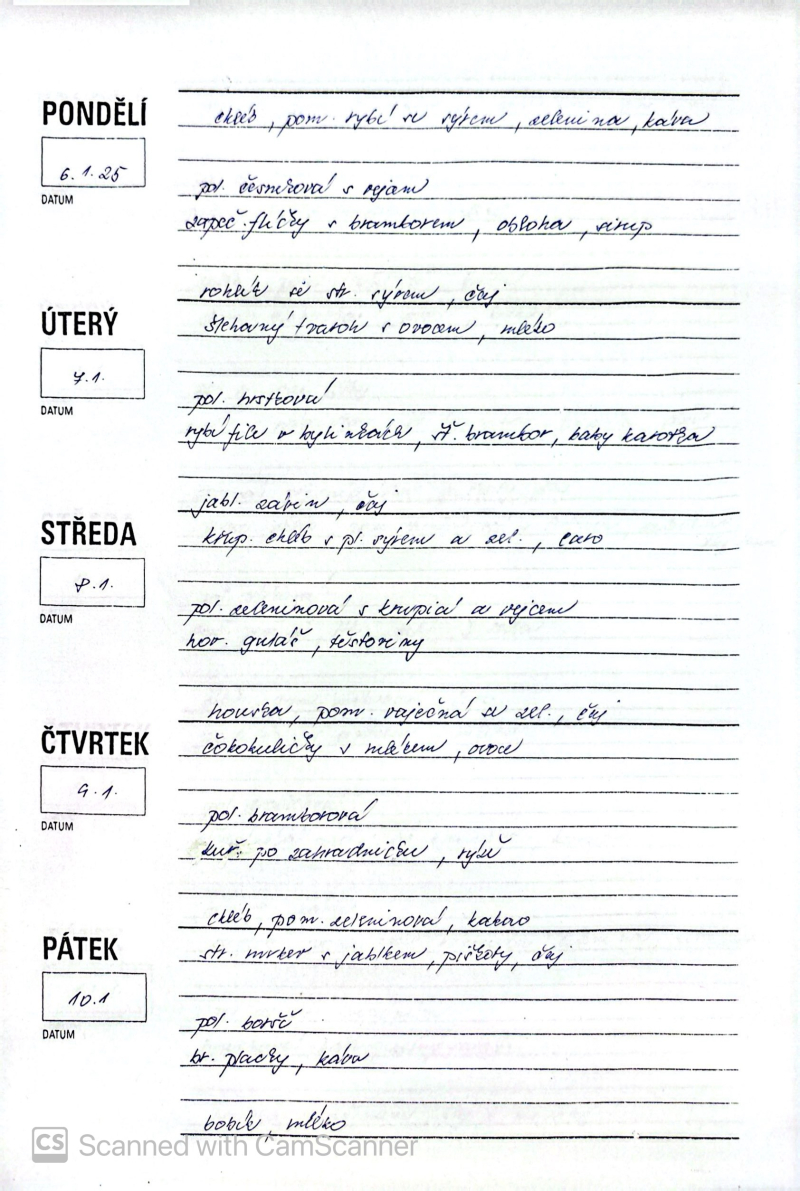 PONDĚLÍ
chléb, pom. rybí se sýrem, zelenina, káva
6.1.25
DATUM
pol. česneková s vejcem
zapeč. flíčky s bramborem, obloha, sirup
rohlík se str. sýrem, čaj
ÚTERÝ
šlehaný tvaroh s ovocem, mléko
7.1.
DATUM
pol. hrstková
rybí file v bylinkách, šť. brambor, baby karotka
jabl. závin, čaj
STŘEDA
křup. chléb s pl. sýrem a zel., caro
8.1.
DATUM
pol. zeleninová s krupicí a vejcem
hov. guláš, těstoviny
houska, pom. vaječná se zel., čaj
ČTVRTEK
čokokuličky s mlékem, ovoce
9.1.
DATUM
pol. bramborová
kuř. po zahradnicku, rýže
chléb, pom. zeleninová, kakao
PÁTEK
str. mrkev s jablkem, piškoty, čaj
10.1
DATUM
pol. boršč
br. placky, káva
bobík, mléko
CS Scanned with CamScanner